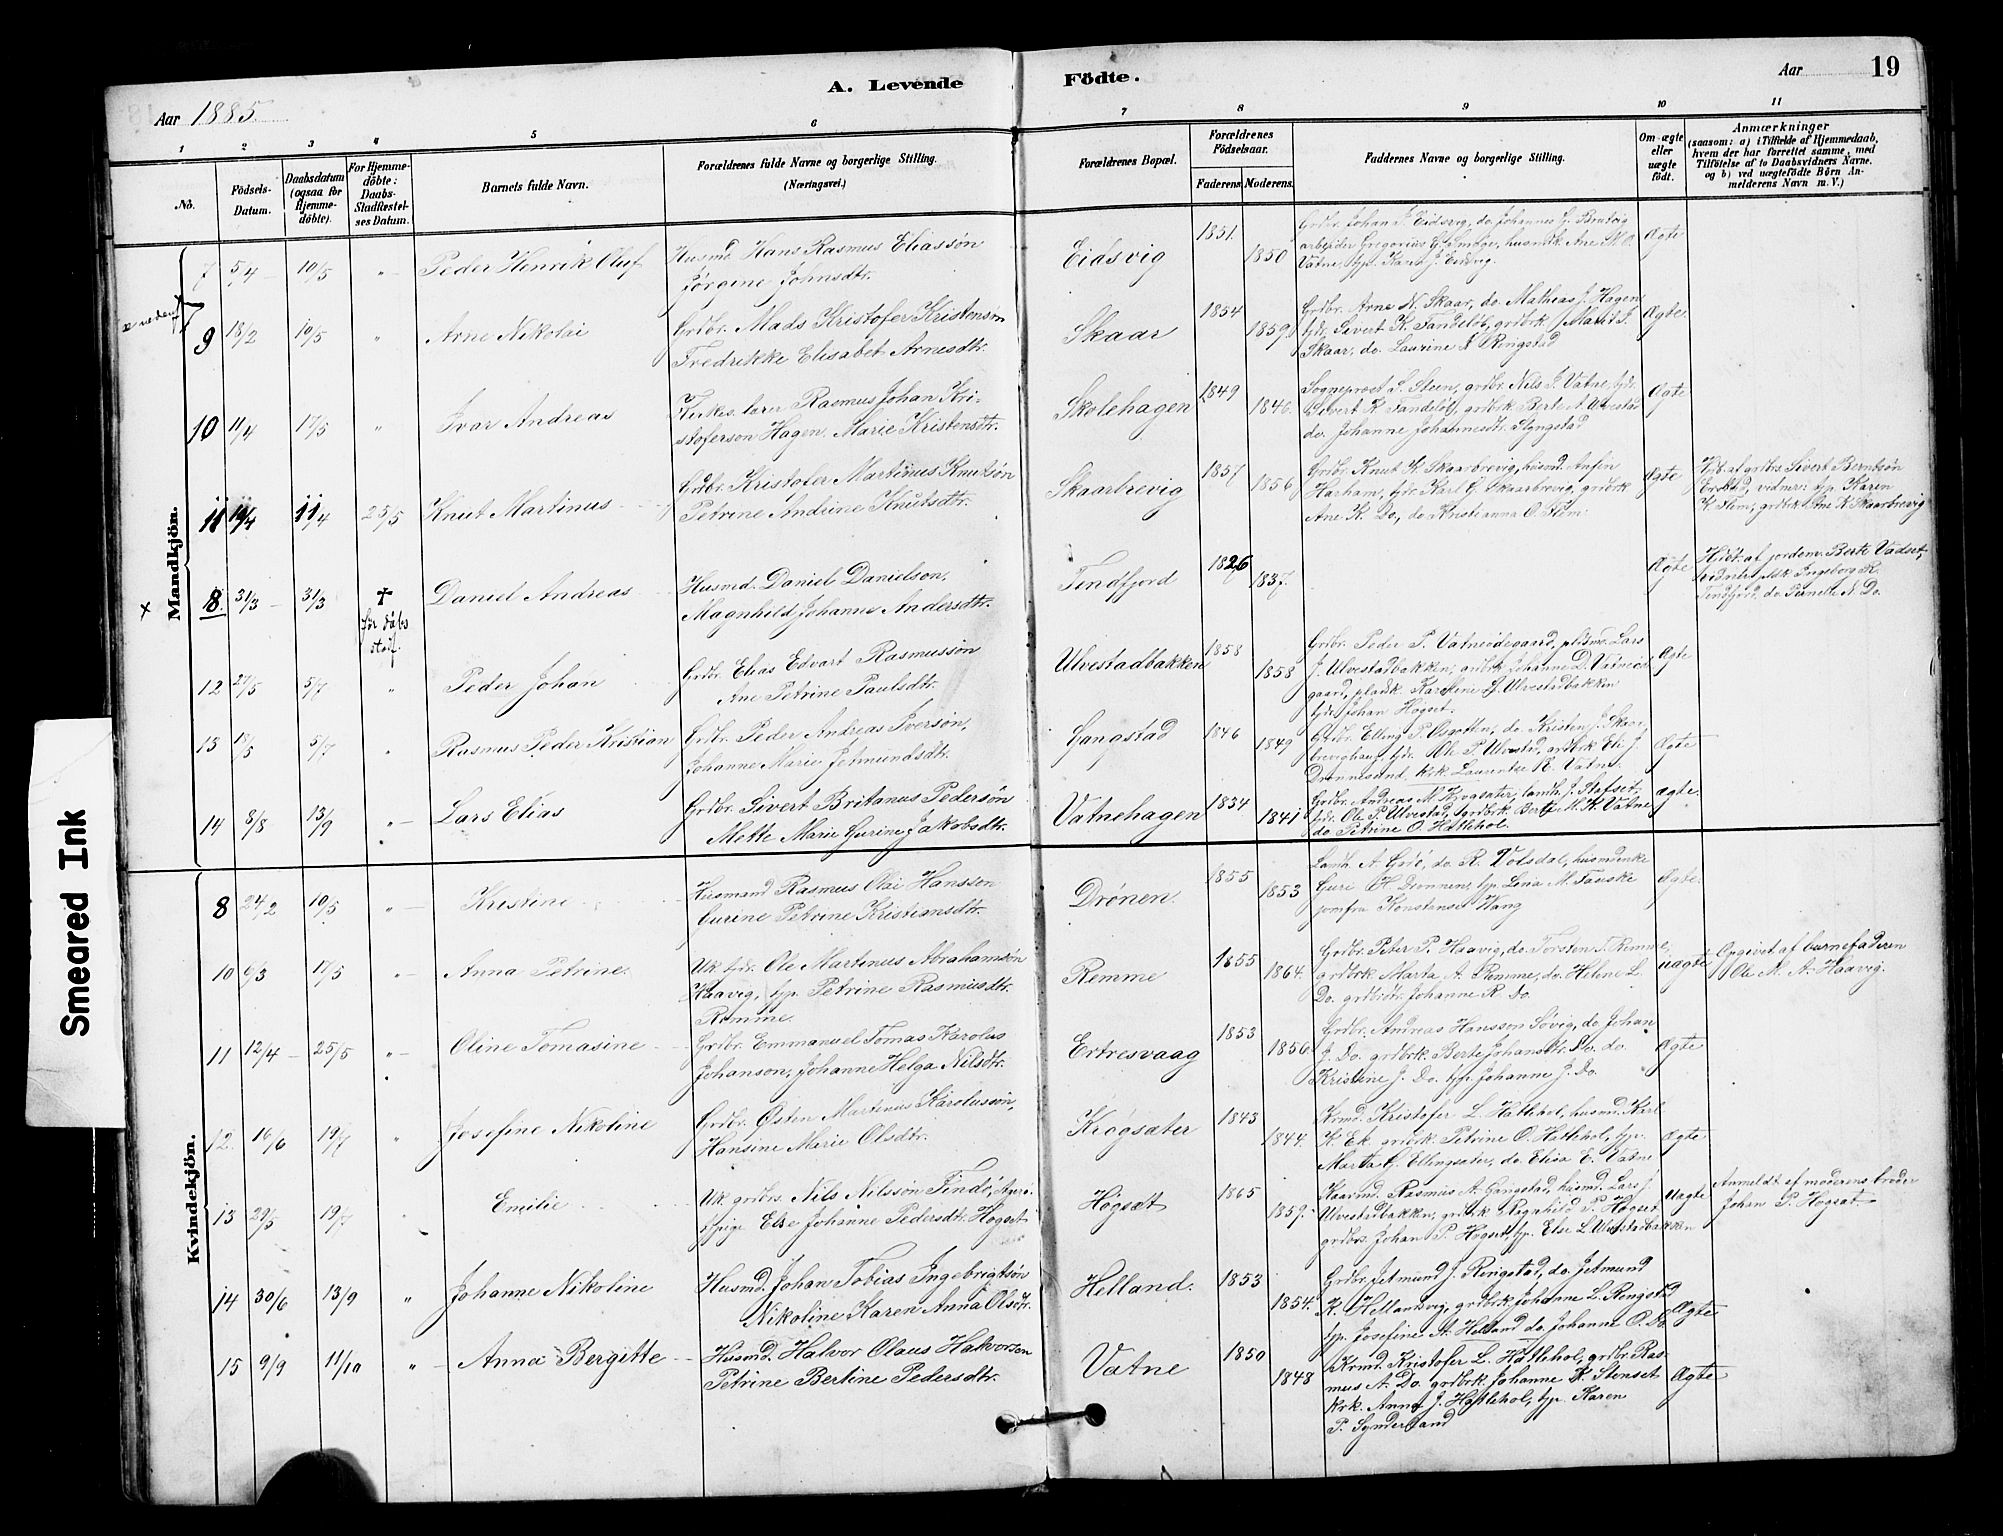 A. Levende Födte.
Aar 1885.
Aar 19
1 2 3 4 5 6 7 8 9 10 11
No.
Födsels-Datum.
Daabsdatum (ogsaa for Hjemme-döbte).
For Hjemme-döbte: Daabs-Stadfæstel-ses Datum.
Barnets fulde Navn.
Forældrenes fulde Navne og borgerlige Stilling. (Næringsvei.)
Forældrenes Bopæl.
Forældrenes Födselsaar.
Faderens Moderens.
Faddernes Navne og borgerlige Stilling.
Om ægte eller uægte födt.
Anmærkninger
(saasom: a) i Tilfælde af Hjemmedaab,
hvem der har forrettet samme, med
Tilföielse af to Daabsvidners Navne,
og b) ved uægtefödte Börn An-
melderens Navn m. V.)
Mandkjön.
7 5/4 10/5 " Peder Henrik Oluf
Husmd. Hans Rasmus Eliassön
Jörgine Johnsdtr.
Eidsvig 1851. 1850
Grdbr. Johan P. Eidsvig, do. Johannes G. Brutvig
arbeider Gregorius G. Smoge, husmk. Ane M. O.
Vatne, tjp. Karen J. Eidsvig.
Ægte
9 18/2 10/5 " Arne Nikolai
Grdbr. Mads Kristofer Kristensön
Fredrikke Elisabet Arnesdtr.
Skaar 1854 1859
Grdbr. Arne N. Skaar, do. Mathias J. Hagen
tjdr. Sivert K. Tandeløb, grdbrk. Marit J.
Skaar, do. Laurine Ringstad
Ægte.
10 11/4 17/5 " Ivar Andreas
Kirkes. lærer Rasmus Johan Kri-
stoferson Hagen, Marie Kristensdtr.
Skolehagen 1849 1846.
Sogneprost S. Steen, grdbr. Nils J. Vatne, tjdr.
Sivert K. Tandeløb, grdbrk. Berte A. Ulvestad
do. Johanne Johannesdtr. Slyngstad
Ægte
11 11/4 25/5 Knut Martinus
Grdbr. Kristofer Martinus Knutsön
Petrine Andrine Knutsdtr.
Skaarbrevig 1857 1856
Grdbr. Knut K. Skaarbrevig, husmd. Anfin
Harham, tjdr. Karl G. Skaarbrevig, grdbrk
Ane K. Do., do. Kristianna O. Slem.
Ægte
Hdt. af grdbrs. Sivert Berntsön
Erdstad, vidner: tjp. Karen
K. Flem, grdbrk. Ane K. Skaarbrevig
x 8. 31/3 31/3 † før dåbs stadf. Daniel Andreas
Husmd. Daniel Danielson,
Magnhild Johanne Andersdtr.
Tendfjord 1826 1837.
Ægte
Hdt. af jordem. Berte Vadset,
vidner: Ingeborg K.
Tendfjord, do. Pernelle N. Do.
12 27/5 5/7 " Peder Johan
Grdbr. Elias Edvart Rasmussön
Ane Petrine Paulsdtr.
Ulvestadbakken 1858 1858
Grdbr. Peder P. Vatneødegaard, pladsmd. Lars
J. Ulvestadbakken, grdbrk. Johanne D. Vatneöd-
gaard, pladsk. Karoline J. Ulvestadbakken
tjdr. Johan Høgset.
Ægte
13 15/5 5/7 " Rasmus Peder Kristian
Grdbr. Peder Andreas Iversön,
Johanne Marie Jetmundsdtr.
Gangstad 1846 1849
Grdbr. Elling P. Osgotten, do. Kristen J. Skaar-
brevighaug, tjdr. Ole P. Ulvestad, grdbrk. Eli J.
Drønnesund, krk. Laurentse R. Vatne.
Ægte
14 8/8 13/9 " Lars Elias
Grdbr. Sivert Britanus Pedersön
Mette Marie Gurine Jakobsdtr.
Vatnehagen 1834 1841
Grdbr. Andreas M. Krogsæter, landh. J. Stafset,
tjdr. Ole P. Ulvestad, grdbrk. Berte M. K. Vatne
do. Petrine O. Hatlehol.
Ægte.
Kvindekjön.
8 24/2 10/5 " Kristine
Husmand Rasmus Olai Hanssen
Gurine Petrine Kristiansdtr.
Drönen. 1855 1853
Landh. A. Grdö, do. R. Volsdal, husmdenke
Guri H. Dronnen, tjp. Lina M. Fauske
jomfru Konstanse Hang
Ægte.
10 6/3 17/5 " Anna Petrine.
Uk. tjdr. Ole Martinus Abrahamsön
Haavig, tjp. Petrine Rasmusdtr.
Remme.
Remme 1855 1864.
Grdbr. Peter P. Haavig, do. Torsten T. Remme,
grdbrk. Marta A. Remme, do. Helene L.
Do. grdbrdtr. Johanne R. Do.
uægte
Opgivet af barnefaderen
Ole M. A. Haavig.
11 12/4 25/5 " Oline Tomasine
Grdbr. Emmanuel Tomas Karolus
Johanson, Johanne Helga Nilsdtr.
Ertresvaag 1853 1856
Grdbr. Andreas Hansson Søvig, do. Johan
J. Do. grdbrk. Berte Johansdtr. Do. do.
Kristine J. Do. tjp. Johanne J. Do.
Ægte
12. 16/6 19/7 " Josefine Nikoline
Grdbr. Østen Martinus Karolussön,
Hansine Marie Olsdtr.
Krøgsæter 1843 1844.
Krmd. Kristofer L. Hatlehol, husmd. Karl
K. Ek. grdbrk. Petrine O. Hatlehol, tjp.
Marta G. Ellingsæter, do. Elisa E. Vatne
Ægte
13 29/5 19/7 Emilie
Uk. grdbrs. Nils Nilsson Tindö, Ager ö.
tjpige Else Johanne Pedersdtr. Høgset
Høgset 1865 1859.
Kaarmd. Rasmus A. Gangstad, husmd. Lars J.
Ulvestadbakken, grdbrk. Ragnhild P. Høgset
grdbrs. Johan P. Høgset, tjp. Else L. Ulvestadbakken
Uægte
Anmeldt af moderens broder
Johan P. Høgsæt.
14 30/6 13/9 " Johanne Nikoline
Husmd. Johan Tobias Ingebrigtsön
Nikoline Karen Anna Olsdtr.
Helland. 1853 1854.
Grdbr. Jetmund J. Ringstad, do. Jetmund
K. Hellandsvig, grdbrk. Johanne L. Ringstad
tjp. Josefine A. Helland do. Johanne O. Do.
Ægte
15 9/9 11/10 " Anna Bergitte
Husmd. Halvor Olaus Halvorsen
Petrine Bertine Pedersdtr.
Vatne 1850 1848
Krmd. Kristofer L. Hatlehol, grdbr. Ras-
mus A. Do. grdbrk. Johanne K. Stenset
krk. Anne J. Hatlehol, tjp. Karen
P. Synderland
Ægte
Smeared Ink